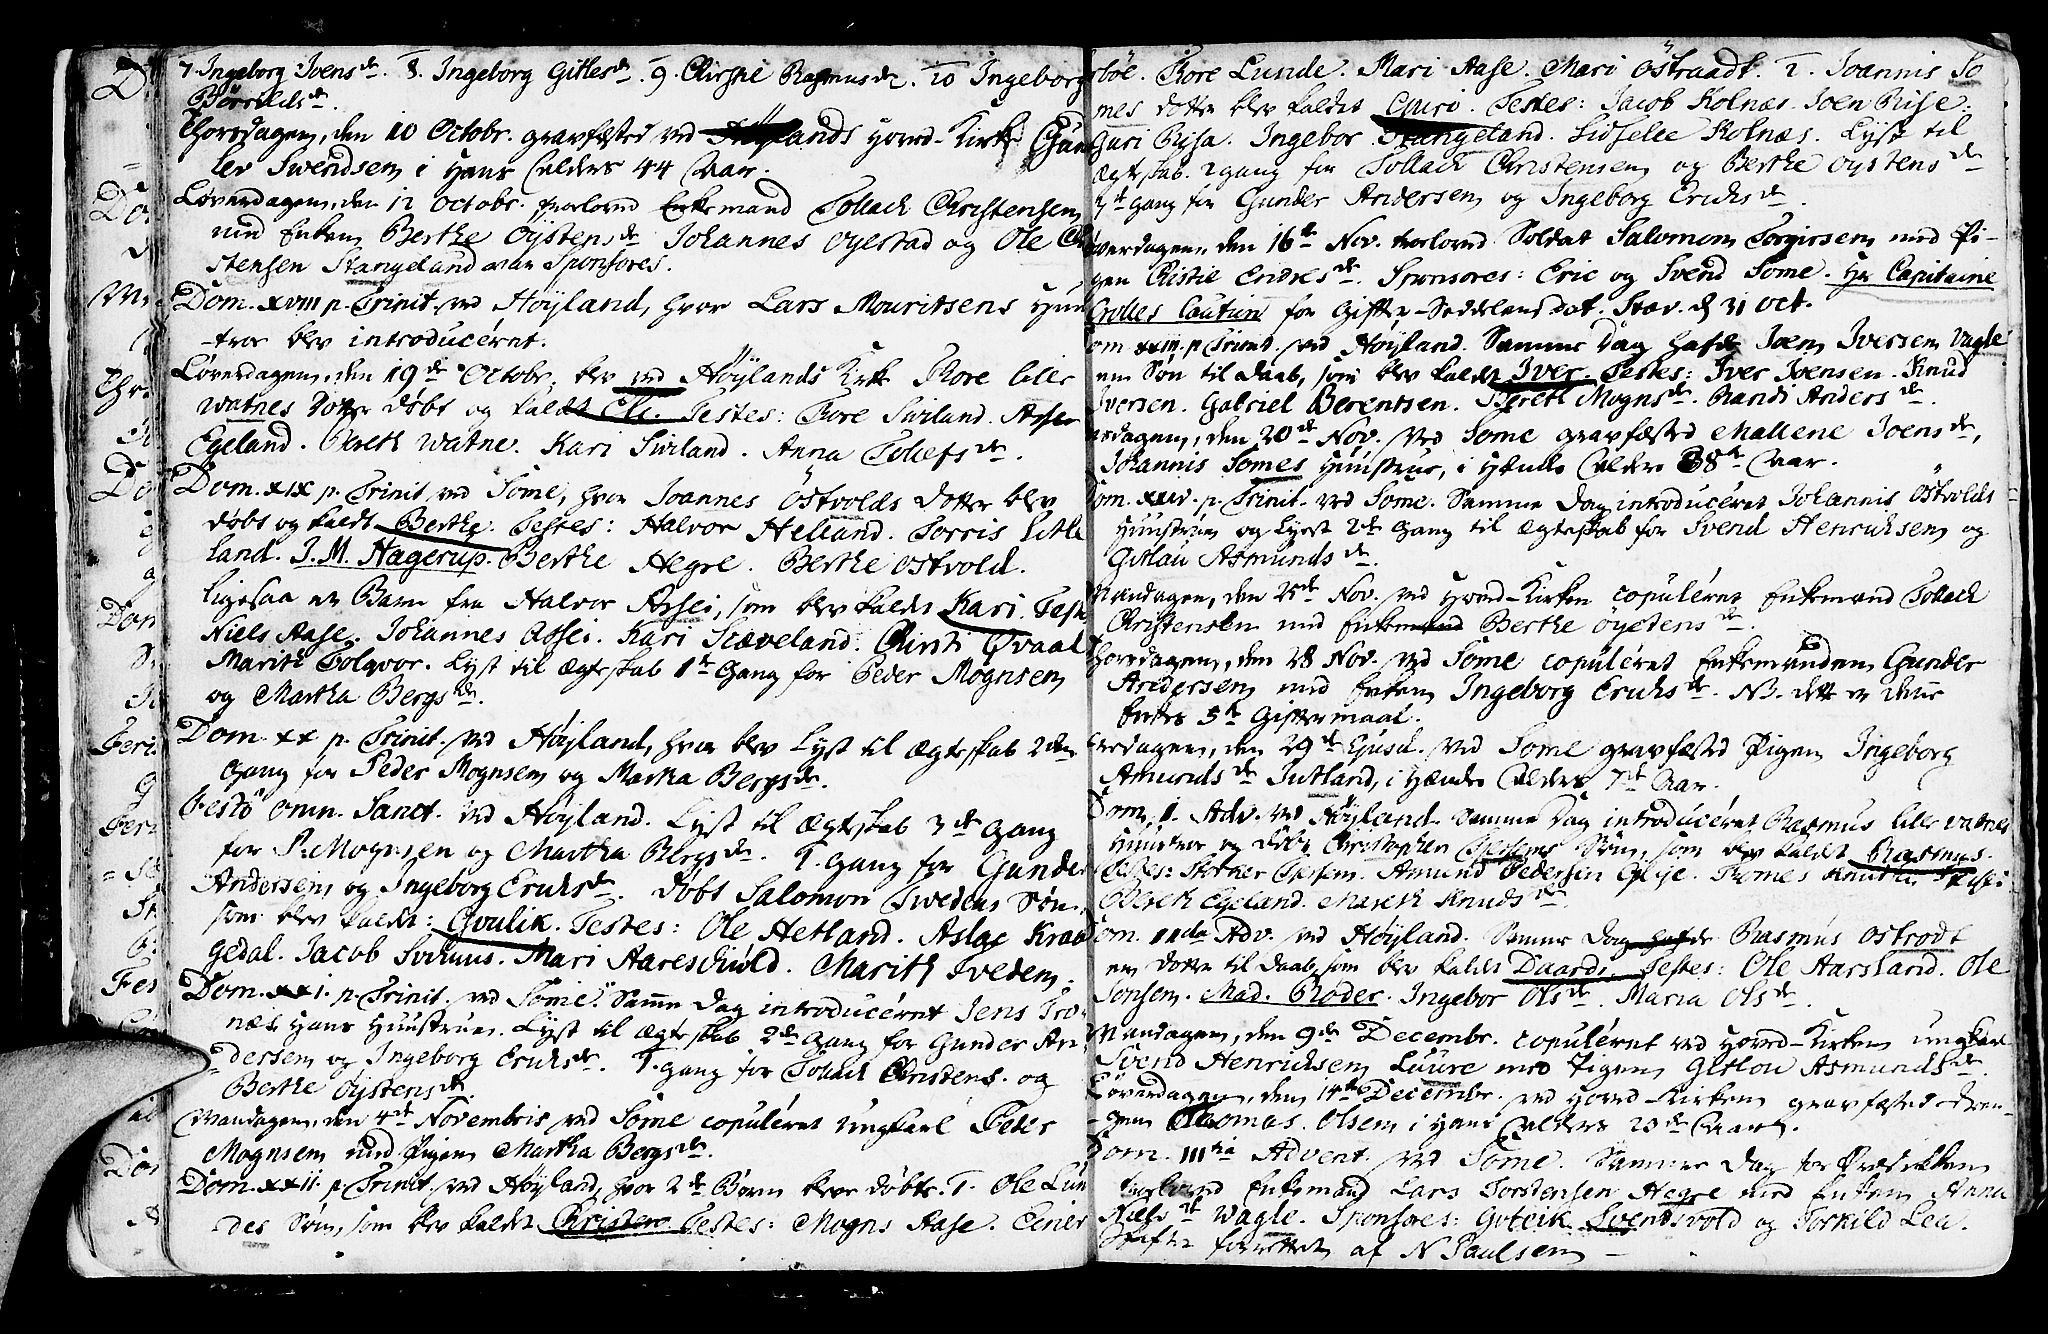 7. Ingeborg Ivensdr. 8. Ingeborg Gitlesdr. 9. Chirstie Rasmusdr. 10 Ingeborg
Börrildsdr.
Thorsdagen, den 10 Octobr. gravfæsted ved Höylands Hoved-Kirke Gun
lev Svendsen i Hans Alders 44 Aar.
Løverdagen, den 12 Octobr. trorloved Enkemand Tollach Christensen
med Enken Berthe Oystensdr Johannes Oyestad og Ole Chri
stensen Stangeland var Sponsores.
Dom. XVIII p. Trinit. ved Höyland, hvor Lars Mouritsens Huu
-strue blev introduceret.
Løverdagen, den 19de Octobr. blev ved Höylands Kirke Tore lille
Watnes Dotter döbt og kaldt Els. Testes: Tore Sviland. Asser
Egeland. Bereth Watne. Kari Sviland. Anna Tolefsdr.
Dom. XIX p. Trinit. ved Some, hvor Joannes Östvolds dotter blev
döbt og kaldt Berthe. Testes: Halvor Helland. Torris Litle
land. J. M. Hagerup. Berthe Hegre. Berthe Ostvold.
ligesaa et Barn fra Halvor Assei, som blev kaldt Kari. Teste
Niels Aase. Johannes Assei. Kari Stæveland. Chirsti Qvaal
Marite Folqvor. Lyst til Ægteskab 1te Gang for Peder Mognsen
og Martha Bergsdr.
Dom. XX p. Trinit. ved Höyland, hvor blev Lyst til Ægteskab 2den
Gang for Peder Mognsen og Martha Bergsdr.
Festo omn. Sanct. ved Höyland. Lyst til Ægteskab 3de Gang
for P. Mognsen og Martha Bergsdr. 1. Gang for Gunder
Andersen og Ingeborg Erichsdr. Döbt Salomon Twedens Sön,
som blev kaldt: Govlik. Testes: Ole Hetland. Aslag Krab
gedal. Jacob. Mari Aareskiold. Marith Tvedem.
Dom. XXI. p. Trinit. ved Some. Samme Dag introduceret Jens Tro
næs Hans Huustrue. Lyst til Ægteskab 2de Gang for Gunder An
dersen og Ingeborg Erichsdr. 1. gang for Tollach Christens. og
Berthe Öystensdr.
Mandagen, den 4de Novembris ved Some copuleret Ungkarl Peder
Mognsen med Pigen Martha Bergsdr.
Dom. XXII. p. Trinit. ved Höyland, hvor 2de Börn bleve döbte. 1. Ole Lun
des Sön, som blev kaldet Christen. Testes: Mogns Aase. Einer
böe. Tore Lunde. Mari Aase. Mari Östraadt. 2. Joannis So
mes dotter blev kaldet Guri. Testes: Jacob Kolnæs. Joen Riise.
Guri Riisa. Ingebor Stangeland. Sidselle Kolnæs. Lyst til
Ægteskab. 2 gang for Tollach Christensen og Berthe Oystensdr
3de Gang for Gunder Andersen og Ingeborg Erichsdr.
Løverdagen, den 16de Nov. trorloved Soldat Salomon Torgiersen med Pi-
gen Kistie Endresdr. Sponsores: Eric og Svend Some. Hr. Capitaine
Crolles Caution for Gifter-Seddelens dat. Stav. d. 31 Oct.
Dom XXIII p. Trinit. ved Höyland. Samme Dag hafde Joen Iversen Vagle
en Sön til Daab, som blev kaldet Iver. Testes: Iver Ivensen. Knud
Iversen. Gabriel Berentsen. Bereth Mognsdr. Randi Andersdr.
dagen, den 20de Nov. ved Some gravfæsted Mallene Joensdr,
Johannis Somes Huustrue, i Hendes Alders 38te Aar.
Dom. XXIV. p. Trinit. ved Some. Samme Dag introduceret Johannis Östvolds
Huustrue og Lyst 2de Gang til Ægteskab for Svend Henrichsen og
Gitlau Asmundsdr.
Mandagen, den 25de Nov. ved Hoved-Kirken copuleret Enkemand Tollach
Christensen med Enkemand Berthe Öystensdr.
Thorsdagen, den 28 Nov. ved Some copuleret Enkemanden Gunder
Andersen med Enken Ingeborg Erichsdr. NB. dette er denne
Enkes 5te Giftermaal.
dagen, den 29de ved Some gravfæsted Pigen Ingeborg
Amundsdr Jutland, i Hendes Alders 7de Aar.
Dom. 1. Adv. ved Höyland. Samme Dag introduceret Rasmus lille Vatnes
Huustrue og döbt Christopher Sön, som blev kaldet Rasmus.
Testes: Amund Pedersen
Bereth Egeland. Mareth Knudsdr.
Dom. IIda Adv. ved Höyland. Samme Dag hafde Rasmus Ostrodt
en dotter til Daab, som blev kaldet Daarde. Testes: Ole Aarsland. Ole
Jonsen. Mad. Röder. Ingebor Olsdr. Maria Olsdr.
Mandagen, den 9de Decembr. copuleret ved Hoved-Kirken Ungkarl
Svend Henrichsen Luure med Pigen Gitlou Asmundsdr.
Löverdagen, den 14de Decembr. ved Hoved-Kirken gravfæsted dren-
gen Thomas Olsen i Hans Alders 20de Aar.
Dom. IIItia Advent. ved Some. Samme Dag for Prædikken
trorloved Enkemand Lars Torstensen Hegre med Enken Anna
Nielsdr Wagle. Sponsores: Goteik Svendsvold og Torkild Lea.
forrettet af N Paulsen